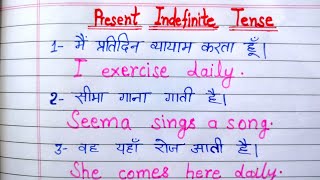 Present Indefinite Tense
1- मैं प्रतिदिन व्यायाम करता हूँ।
I exercise daily.
2- सीमा गाना गाती है।
Seema sings a song.
3- वह यहाँ रोज आती है।
She comes here daily.